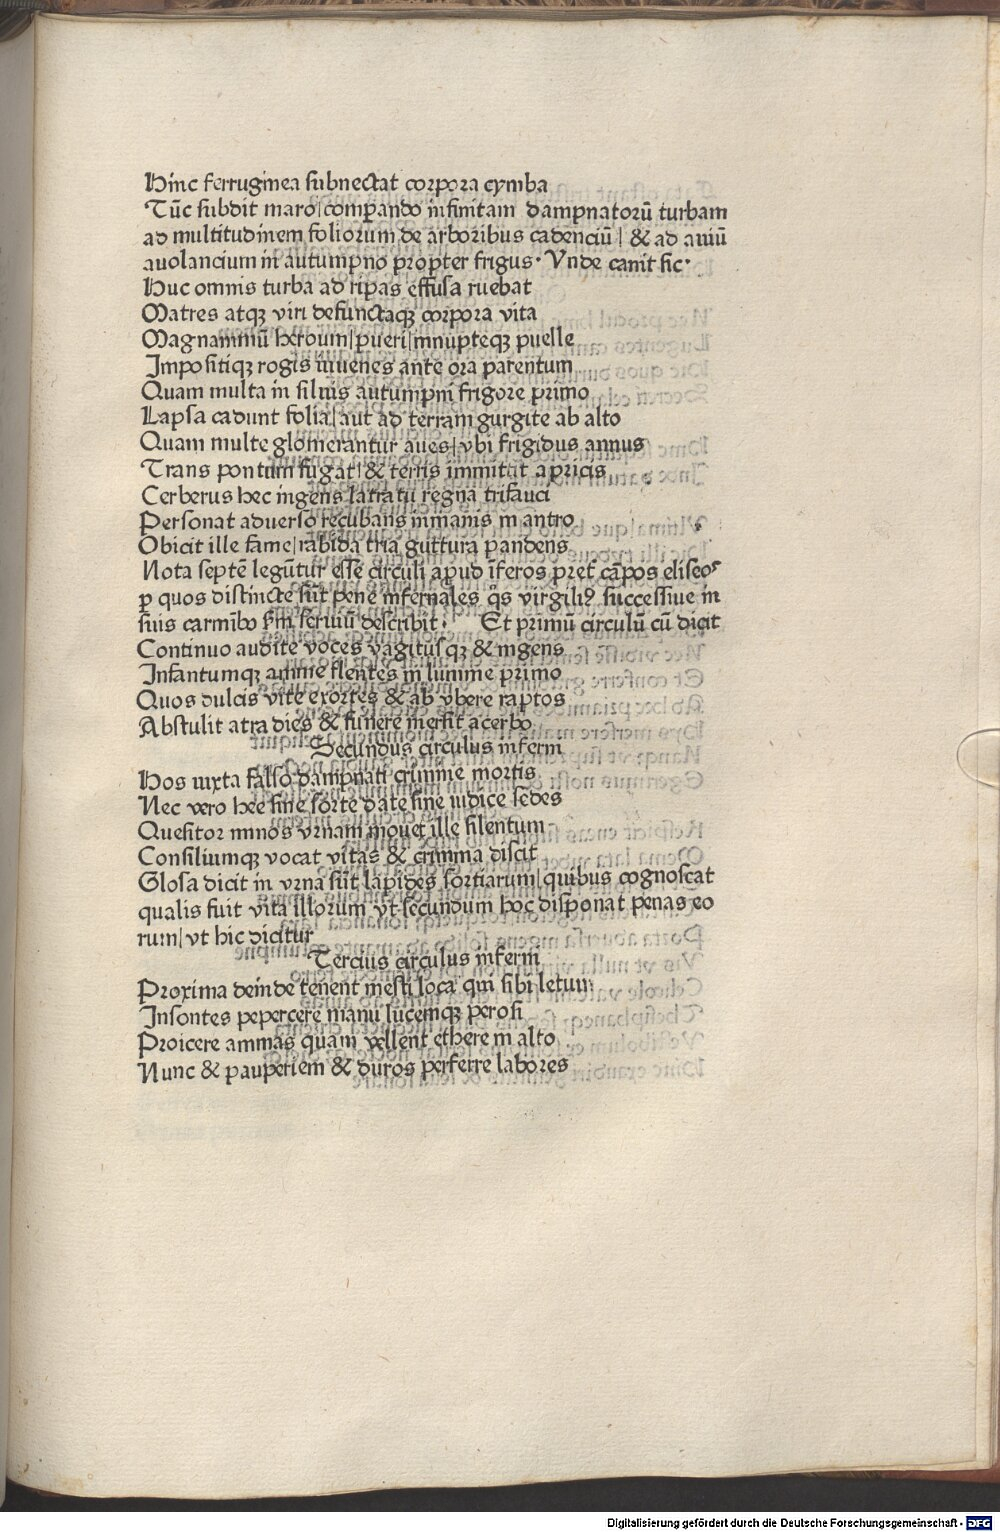 Hinc ferruginea subnectat corpora cymba
Tūc subdit maro|comꝑando infinitam dampnatorū turbam
ad multitudinem foliorum de arboribus cadenciū| & ad auiū
auolancium in autumpno propter frigus· Vnde canit sic·
Huc omnis turba ad ripas effusa ruebat
Matres atqꝫ viri defunctaqꝫ corpora vita
Magnanimū heroum|pueri|innupteqꝫ puelle
Impositiqꝫ rogis iuuenes ante ora parentum
Quam multa in siluis autumpni frigore primo
Lapsa cadunt folia|aut ad terram gurgite ab alto
Quam multe glomerantur aues|vbi frigidus annus
Trans pontum fugat|& terris immitat apricis
Cerberus hec ingens latratu regna trifauci
Personat aduerso recubans inmanis in antro
Obicit ille fame|rabida tria guttura pandens
Nota septē legūtur esse circuli apud īferos pret̄ cāpos eliseoꝝ
ꝑ quos distincte sūt pene infernales q̄s virgiliꝰ successiue in
suis carmībo ẜm seruiū describit· Et primū circulū cū dicit
Continuo audite voces vagitusqꝫ & ingens
Infantumqꝫ anime flentes in lumine primo
Quos dulcis vite exortes & ab vbere raptos
Abstulit atra dies & funere mersit acerbo
Secundus circulus inferni
Hos iuxta falso dampnati crimine mortis
Nec vero hee sine sorte date sine iudice sedes
Quesitor minos vrnam mouet ille silentum
Consiliumqꝫ vocat vitas & crimina discit
Glosa dicit in vrna sūt lapides sortiarum|quibus cognoscat
qualis fuit vita illorum vt secundum hoc disponat penas eo
rum|vt hic dicitur
Tercius circulus inferni
Proxima deinde tenent mesti loca qui sibi letum
Insontes pepercere manu lucemqꝫ perosi
Proicere animas quam vellent ethere in alto
Nunc & pauperiem & duros perferre labores
Digitalisierung gefördert durch die Deutsche Forschungsgemeinschaft - DFG